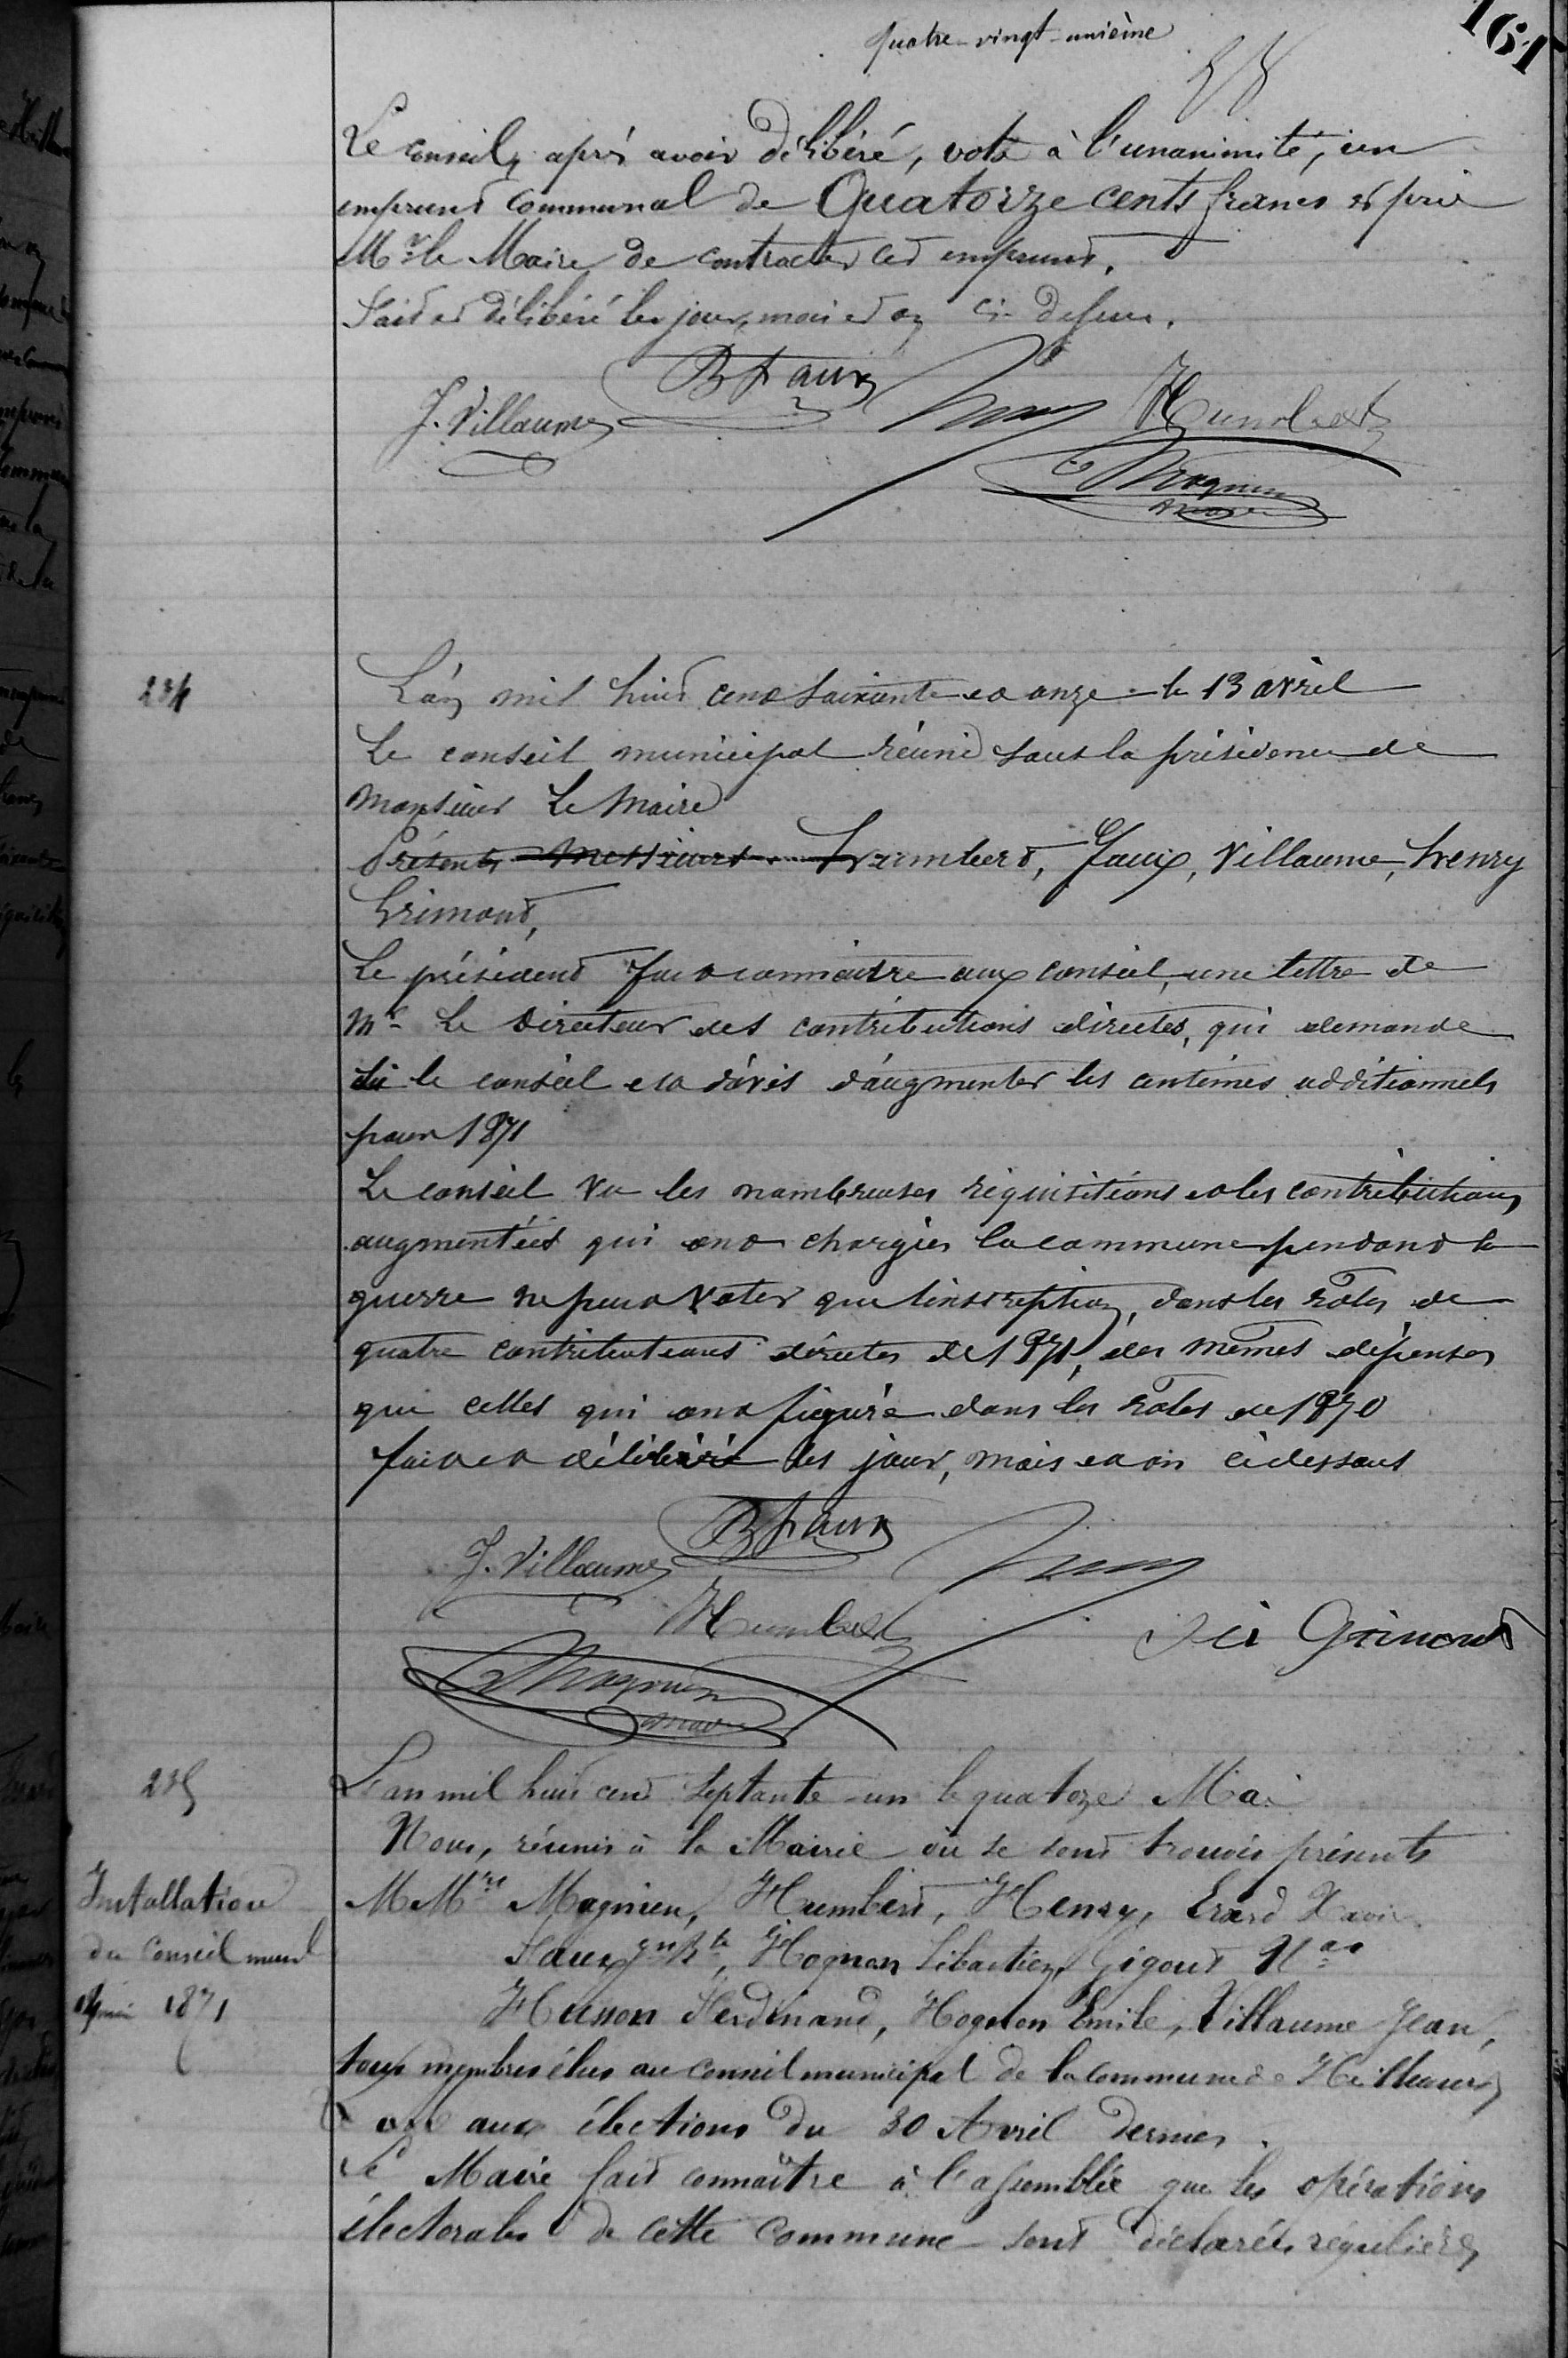 quatre-vingt-unième
161
Le Conseil, après avoir délibéré, vote à l'unanimité, un
emprunt Communal de Quatorze cents francs et prie
Mr le Maire de contracter cet emprunt.
Fait et délibéré les jour, mois et an ci-dessus.
J. Villaume BFaux Humbert
Magnien
maire
234
L'an mil huit cent soixante et onze le 13 avril
Le conseil municipal réuni sous la présidence de
Monsieur Le Maire
Présents Messieurs Humbert, Faux, Villaume, henry
Grimont,
Le président fait connaitre aux conseil, une lettre de
Mr Le Directeur des contributions directes, qui demande
si le conseil est d'avis d'augmenter les centimes additionnels
pour 1871
Le conseil Vu les nombreuses réquisitions et les contributions
augmentées qui ont chargées la commune pendant la
guerre ne peut Voter que l'inscription, dans les rôles de
quatre contributions directes de 1871, des mêmes dépenses
que celles qui ont figuré dans les rôles de 1870
fait et délibéré les jour, mois et an ci dessous
J. Villaume BFaux
Humbert Grimont
Magnien
maire
235
L'an mil huit cent septante-un le quatorze Mai
Nous, réunis à la Mairie où se sont trouvés présents
Installation
MMrs Magnien, Humbert, Henry, Erard Xavier
du Conseil munl
Faux Jn Bte, Hognon Sébastien, Gigout Nas
14 mai 1871
Husson Ferdinand, Hognon Emile, Villaume Jean,
tous membres élus au conseil municipal de la commune de
aux élections du 30 Avril dernier.
Le Maire fait connaître à l'assemblée que les opérations
électorales de cette commune sont déclarées régulières